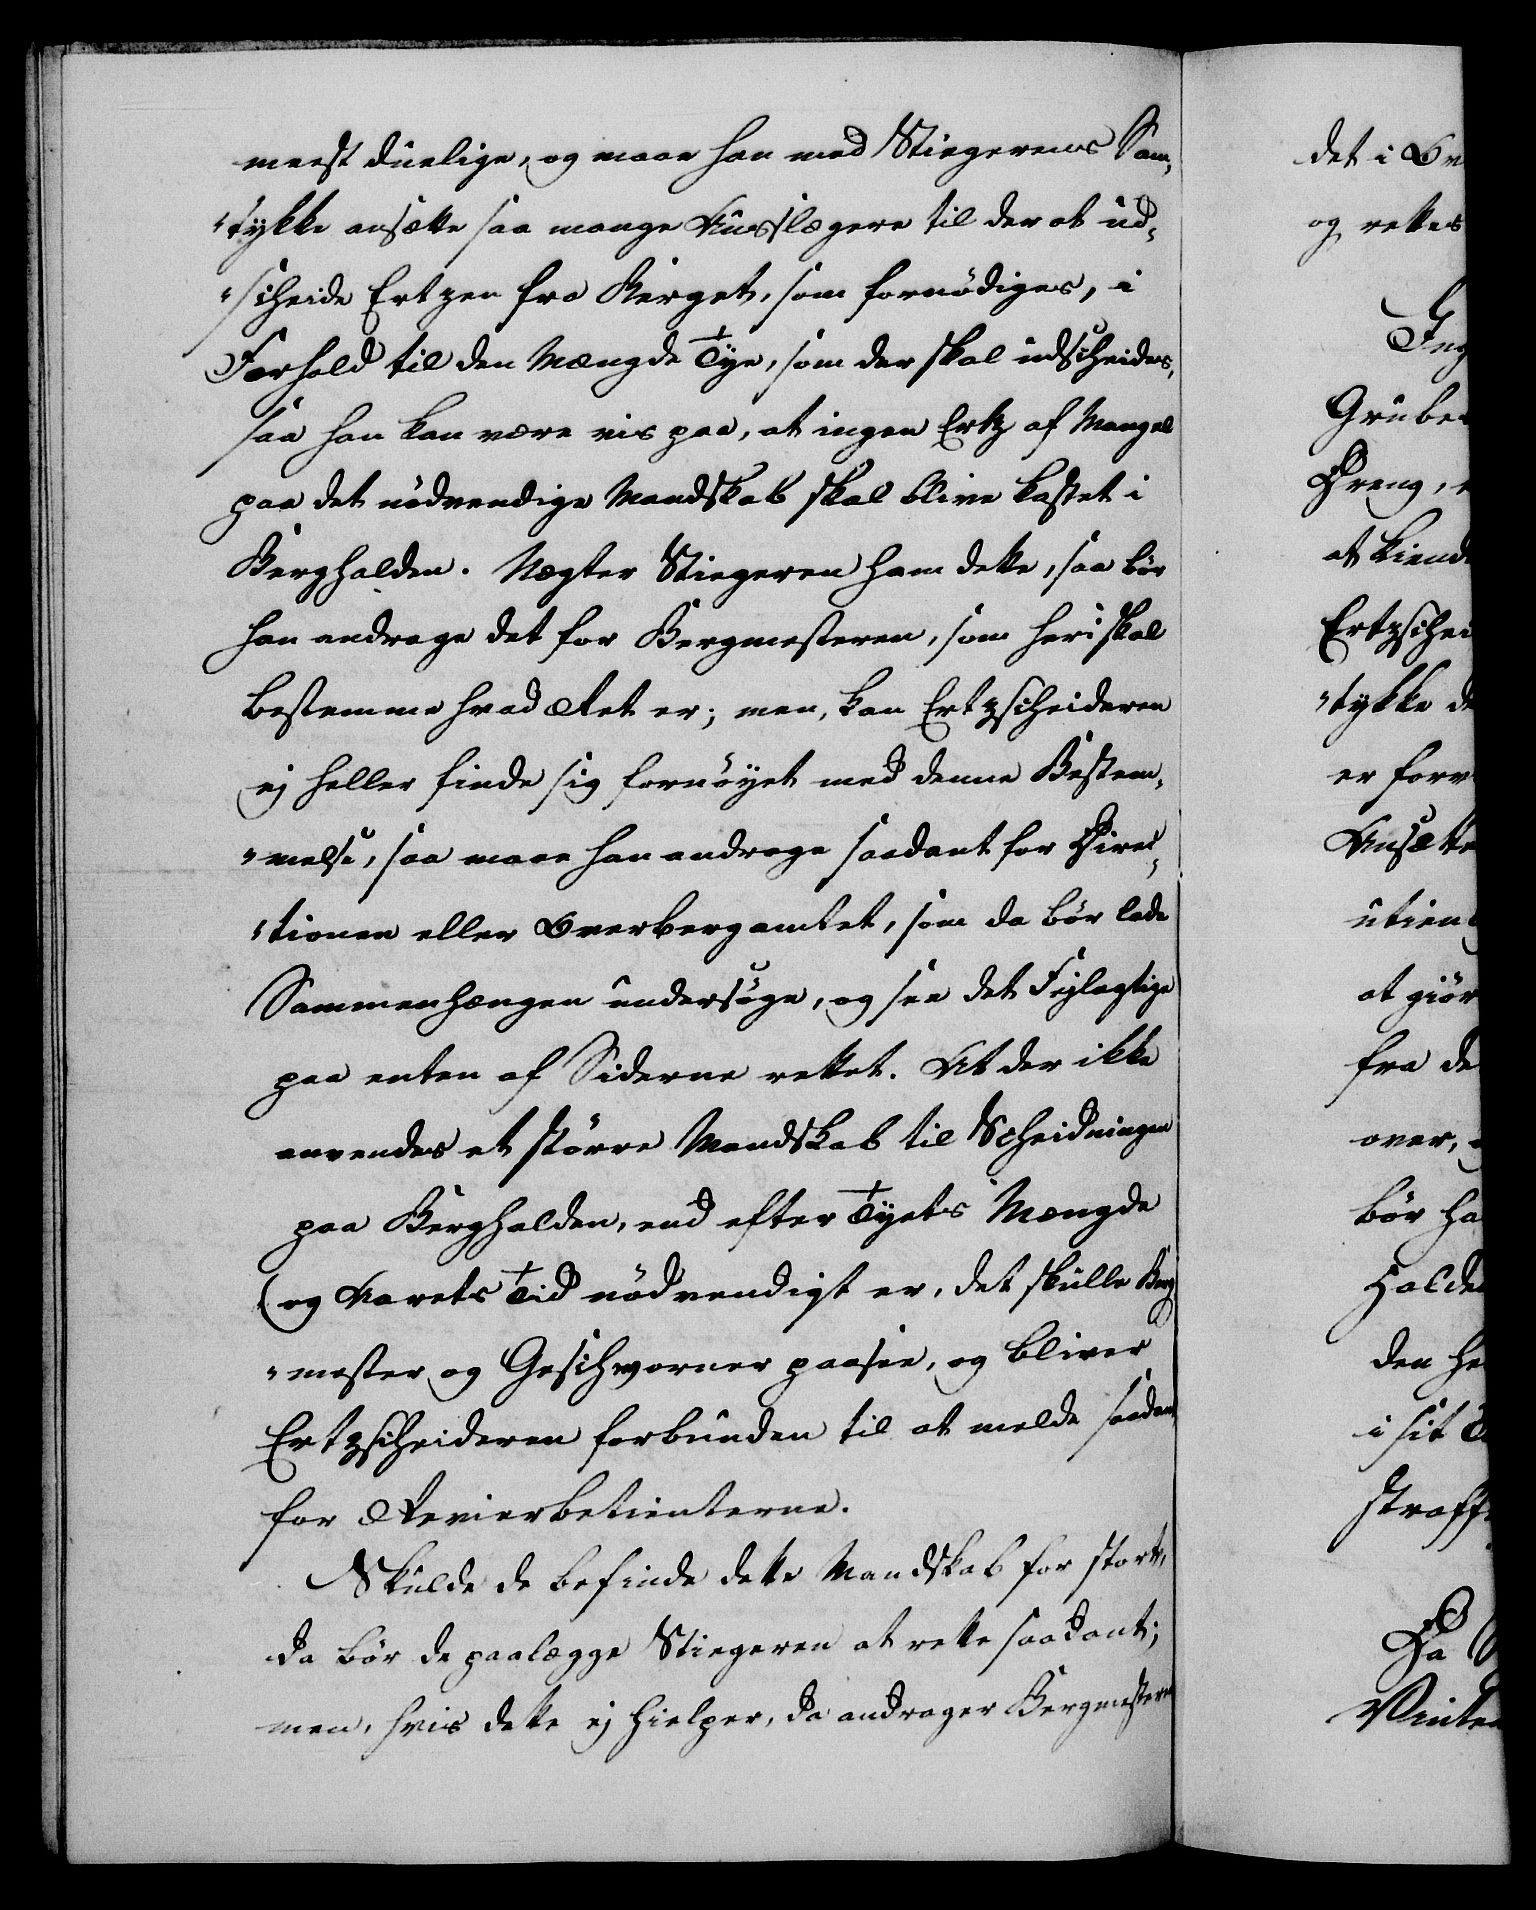 meest duelige, og maae han med Stiegerens Sam,
"tykke ansætte saa mange Ausslægere til der at ud,
"scheide Ertzen fra Bierget, som fornödiges, i
Forhold til den Mængde Tye, som der skal udscheides,
saa han kan være vis paa, at ingen Ertz af Mangel
paa det nödvendige Mandskab skal blive kastet i
Berghalden. Nægter Stiegeren ham dette, saa bör
han andrage det for Bergmesteren, som heri skal
bestemme hvad Ret er; men, kan Ertzscheideren
ej heller finde sig fornöyet med denne Bestem,
"melse, saa maae han andrage saadant for Direc,
"tionen eller Overbergamtet, som da bör lade
Sammenhængen undersöge, og see det Fejlagtige
paa enten af Siderne rettet. At der ikke
anvendes et större Mandskab til Scheidningen
paa Berghalden, end efter Tyets Mængde
og Aarets Tid nödvendigt er, det skulle Berg
"mester og Geschworner paasee, og bliver
Ertzscheideren forbunden til at melde saadant
for Revierbetienterne.
Skulde de befinde dette Mandskab for stort,
da bör de paalægge Stiegeren at rette saadant;
men, hvis dette ej hielper, da andrager Bergmesteren
det i Ov
og rettes
Ing
Grube
Dreng,
at kiend
Ertzschei
"tykke d
er forv
Ansætte
utien
at giör
fra de
over,
bör ha
Halde
den he
i sit
straff
Da
Vinte